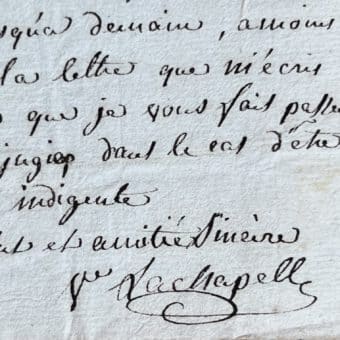 squ'a demain, amoins
la lettre que m'écris
que je vous fait passer
jugiez dans le cas d'être
indigente
ut et amitié Sincère
Lachapelle